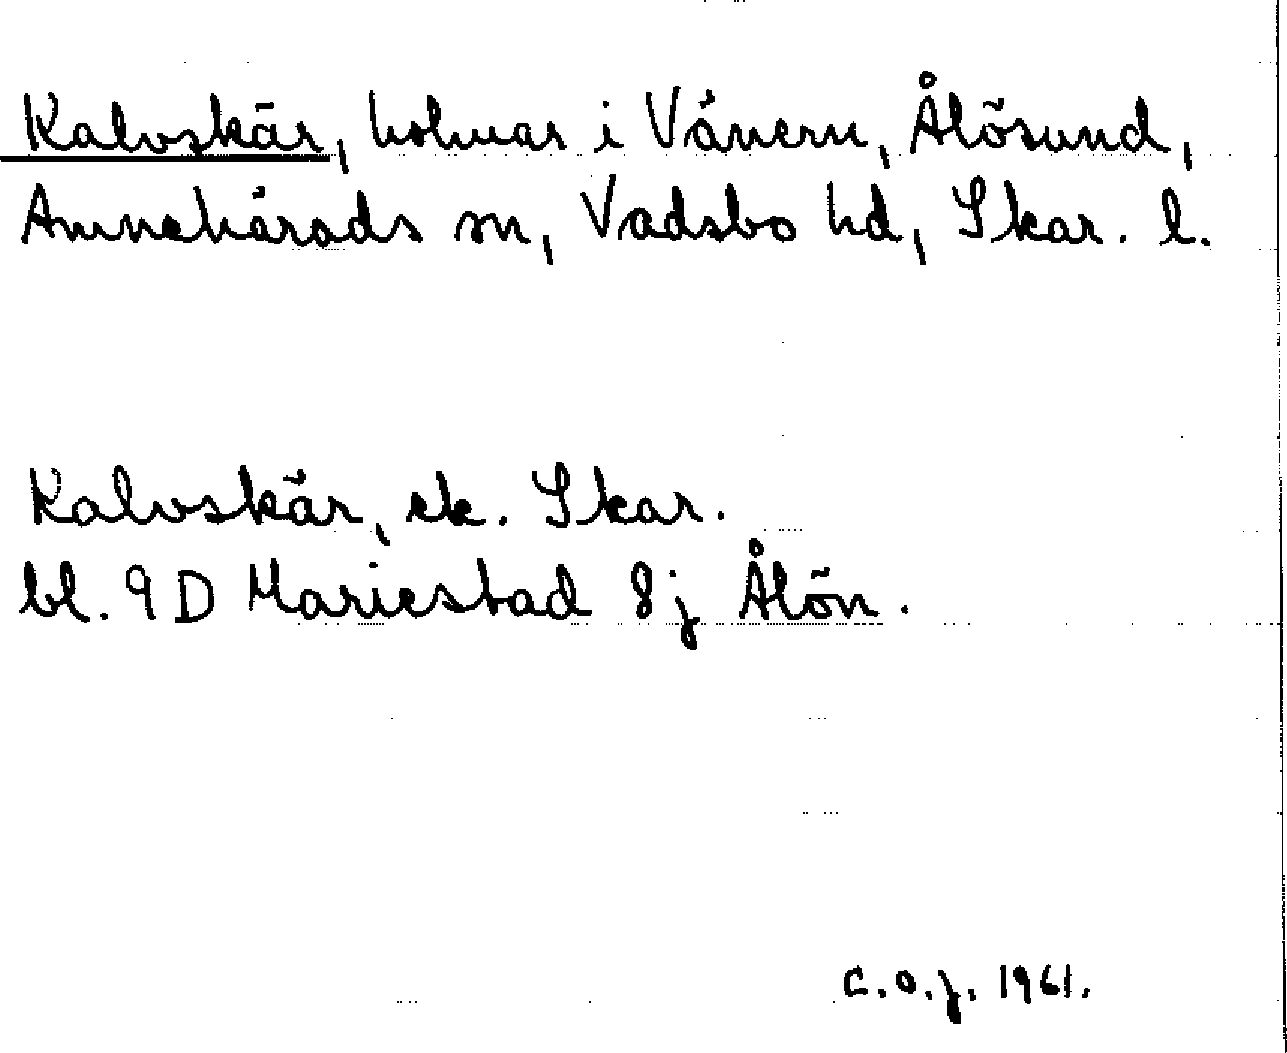 Kalvskär, holmar i Vänern, Ålösund,
Amnehärads sn, Vadsbo hd, Skar. l.
Kalvskär, ek. Skar.
bl. 9D Mariestad 8j Ålön.
C.O.J. 1961.